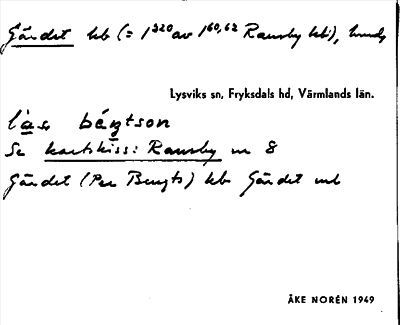 Gärdet hb (= 1³²⁰ av 1⁶⁰,⁶² Ransby hb),
Lysviks sn, Fryksdals hd, Värmlands län.
béngtson
Se kartskiss: Ransby nr 8
Gärdet (Per Bengts) hb Gärdet
ÅKE NORÉN 1949